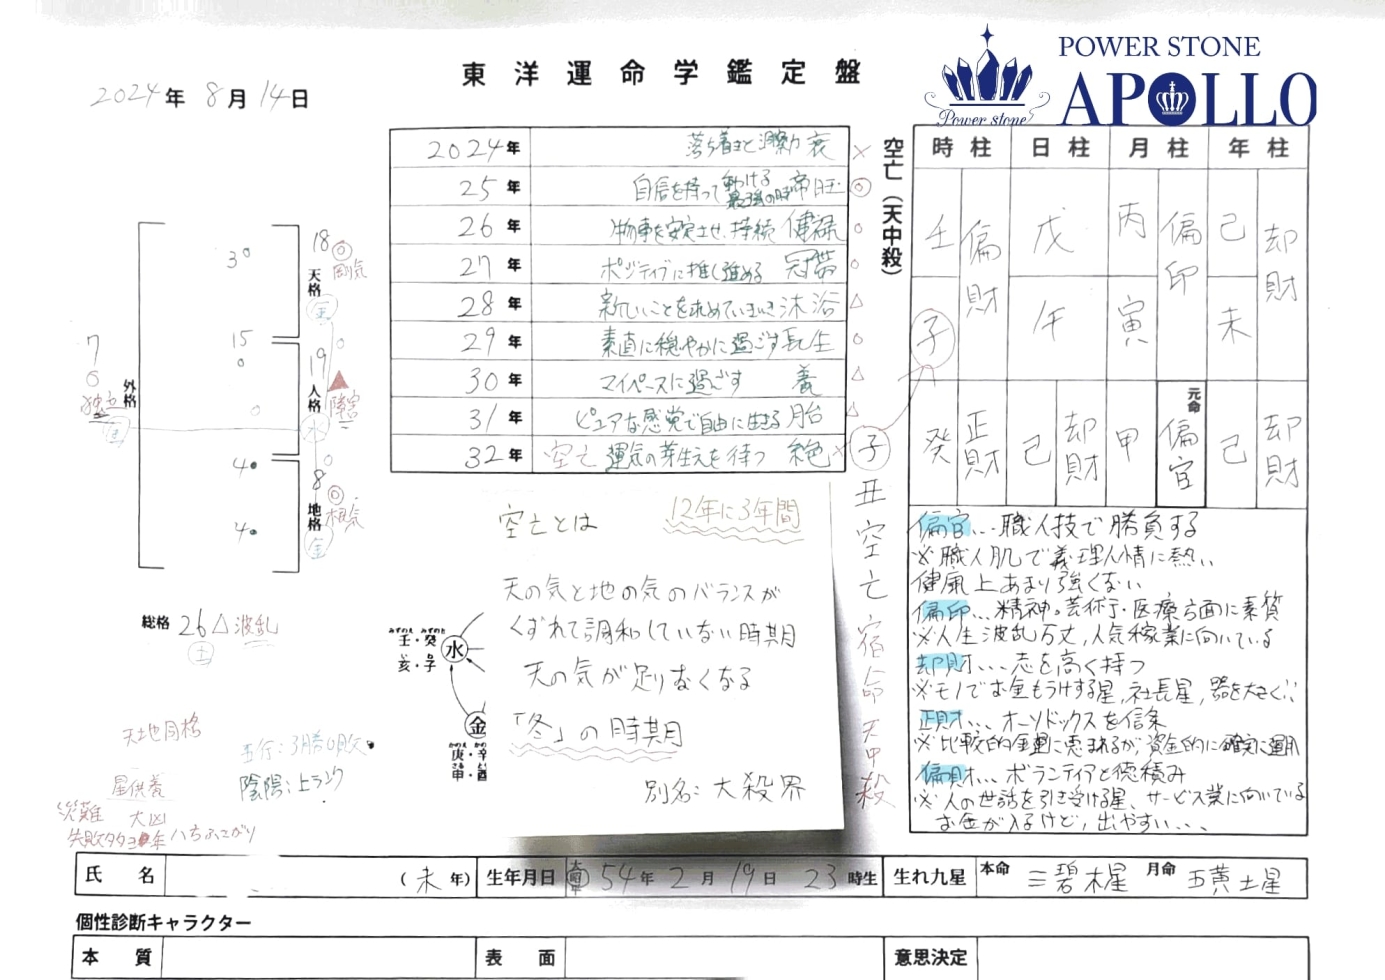 東洋運命学鑑定盤
POWER STONE
APOLLO
Power stone
2024年 8月 14日
2024年 落ち着きと 衰 ×
25年 自信を持って動ける 最強の時 帝旺 ◎
26年 物事を安定させ、持続 健禄 ○
27年 ポジティブに推し進める 冠帯 ○
28年 新しいことを求めていきいき 沐浴 △
29年 素直に穏やかに過ごす 長生 ○
30年 マイペースに過ごす 養 △
31年 ピュアな感覚で自由に生きる 胎 △
32年 空亡 運気の芽生えを待つ 絶 ×
空亡(天中殺)
子
丑
空
亡
宿
命
天
中
殺
時柱 日柱 月柱 年柱
壬 偏財 戊 丙 偏印 己 却財
子 午 寅 未
癸 正財 己 却財 甲 元命 偏官 己 却財
偏官…職人技で勝負する
※職人肌で義理人情に熱い
健康上あまり強くない
偏印…精神。芸術・医療方面に素質
※人生波乱万丈,人気稼業に向いている
却財…志を高く持つ
※モノでお金もうけする星,社長星,器を大きく
正財…オーソドックスを信条
※比較的金運に恵まれるが,資金的に確実に運用
偏財…ボランティアと徳積み
※人の世話を引き受ける星、サービス業に向いている
お金が入るけど,出やすい…
18 ◎ 剛気
天格
金
3
15
19
人格
障害
水
7
外格
独立
4
4
8 ◎ 根気
地格
金
総格 26 △ 波乱
土
天地同格
星供養
災難 大凶
五行:3勝0敗
陰陽:上ランク
空亡とは 12年に3年間
天の気と地の気のバランスが
くずれて調和していない時期
天の気が足りなくなる
「冬」の時期
別名:大殺界
みずのえ みずのと
壬・癸
亥・子
水
金
かのえ
庚・辛
さる
申・酉
氏名 (未年) 生年月日 大昭平 54年 2月 19日 23時生 生れ九星 本命 三碧木星 月命 五黄土星
個性診断キャラクター
本質 表面 意思決定